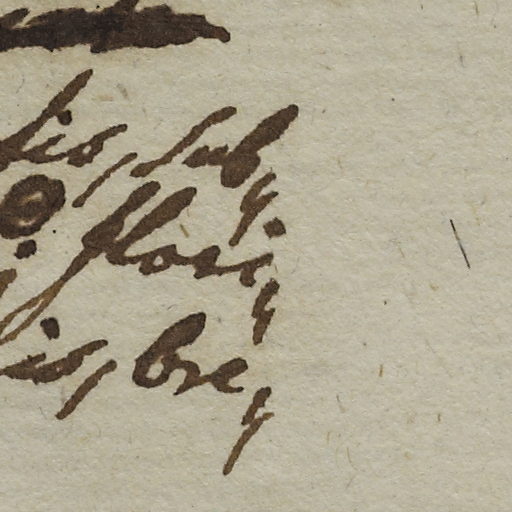 lis, sub,
flori,
is, bre,